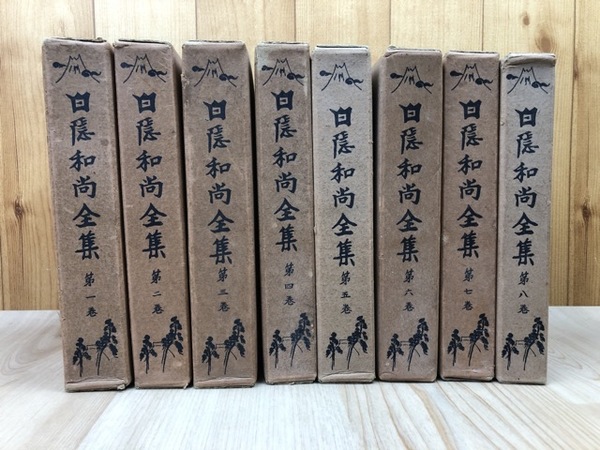 白隠和尚全集 第一巻
白隠和尚全集 第二巻
白隠和尚全集 第三巻
白隠和尚全集 第四巻
白隠和尚全集 第五巻
白隠和尚全集 第六巻
白隠和尚全集 第七巻
白隠和尚全集 第八巻